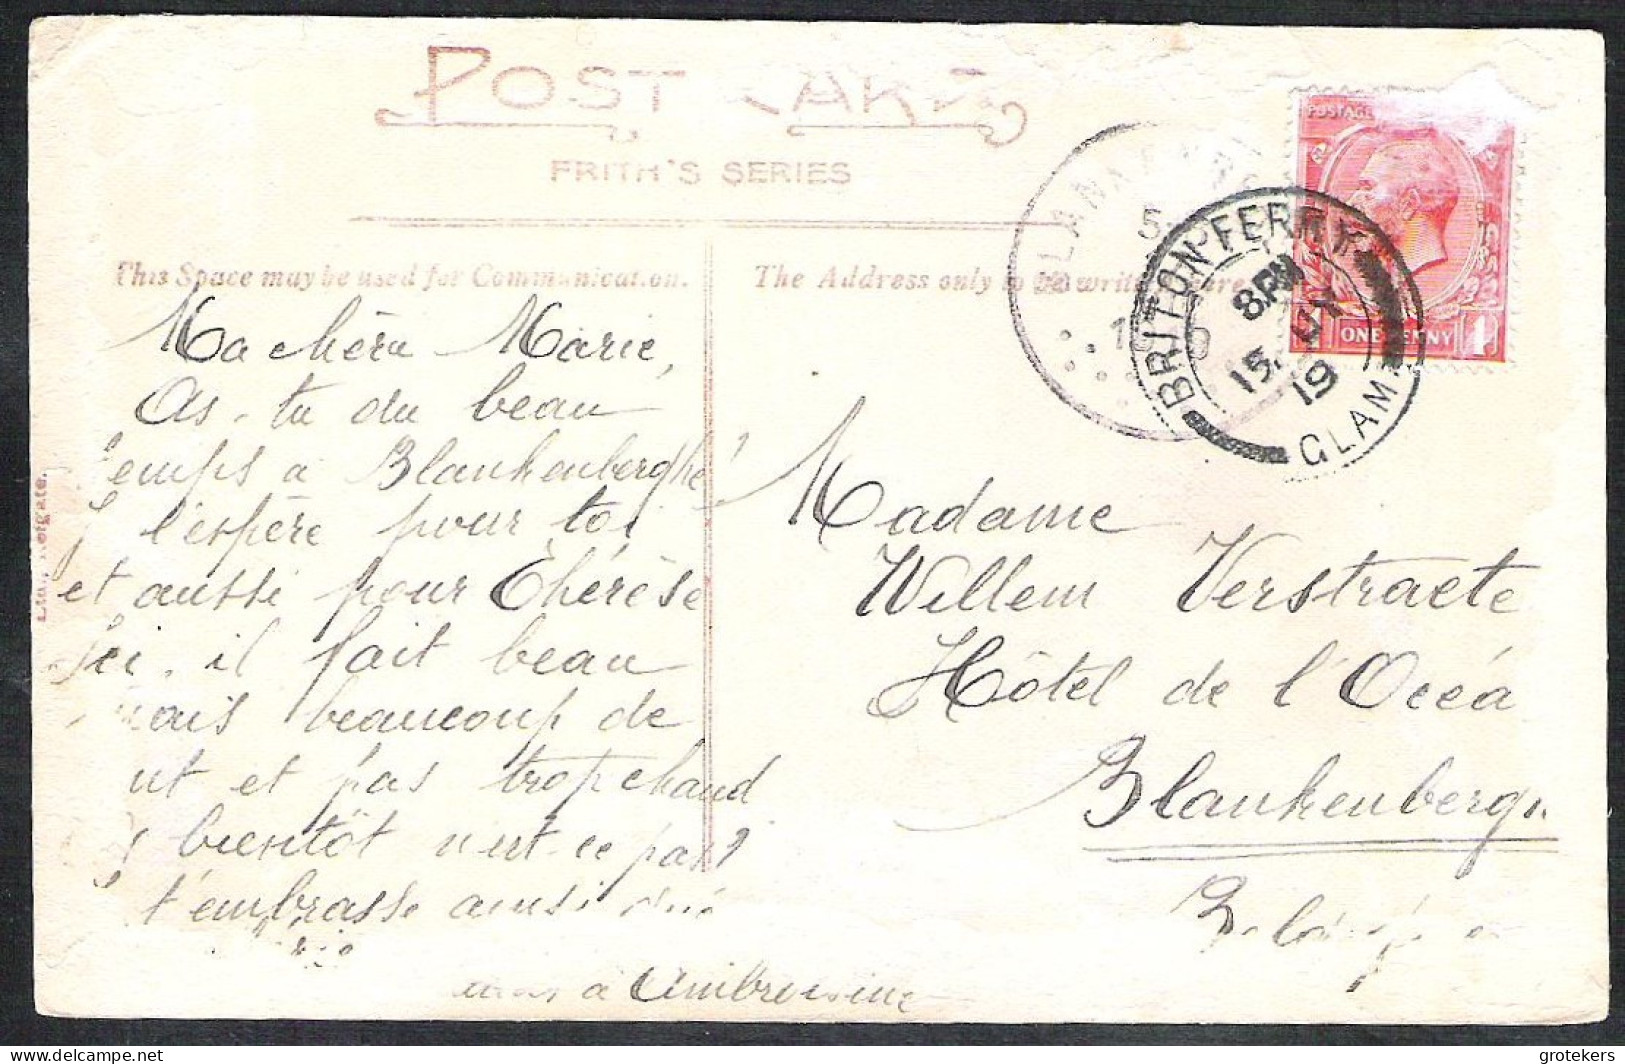 POST CARD
FRITH'S SERIES
This Space may be used for Communication.
The Address only to be written
POSTAGE
ONE PENNY 1
BRITON FERRY
GLAM
8 PM
15
19
Reigate.
Ma chère Marie,
As-tu du beau
temps à Blankenberghe
l'espère pour toi
et aussi pour Thérèse
Ici, il fait beau
mais beaucoup de
et pas trop chaud
bientôt n'est-ce pas?
t'embrasse ainsi
à Ambroisine
Madame
Willem Verstraete
Hôtel de l'Océa
Blankenbergh
delcampe.net
grotekers